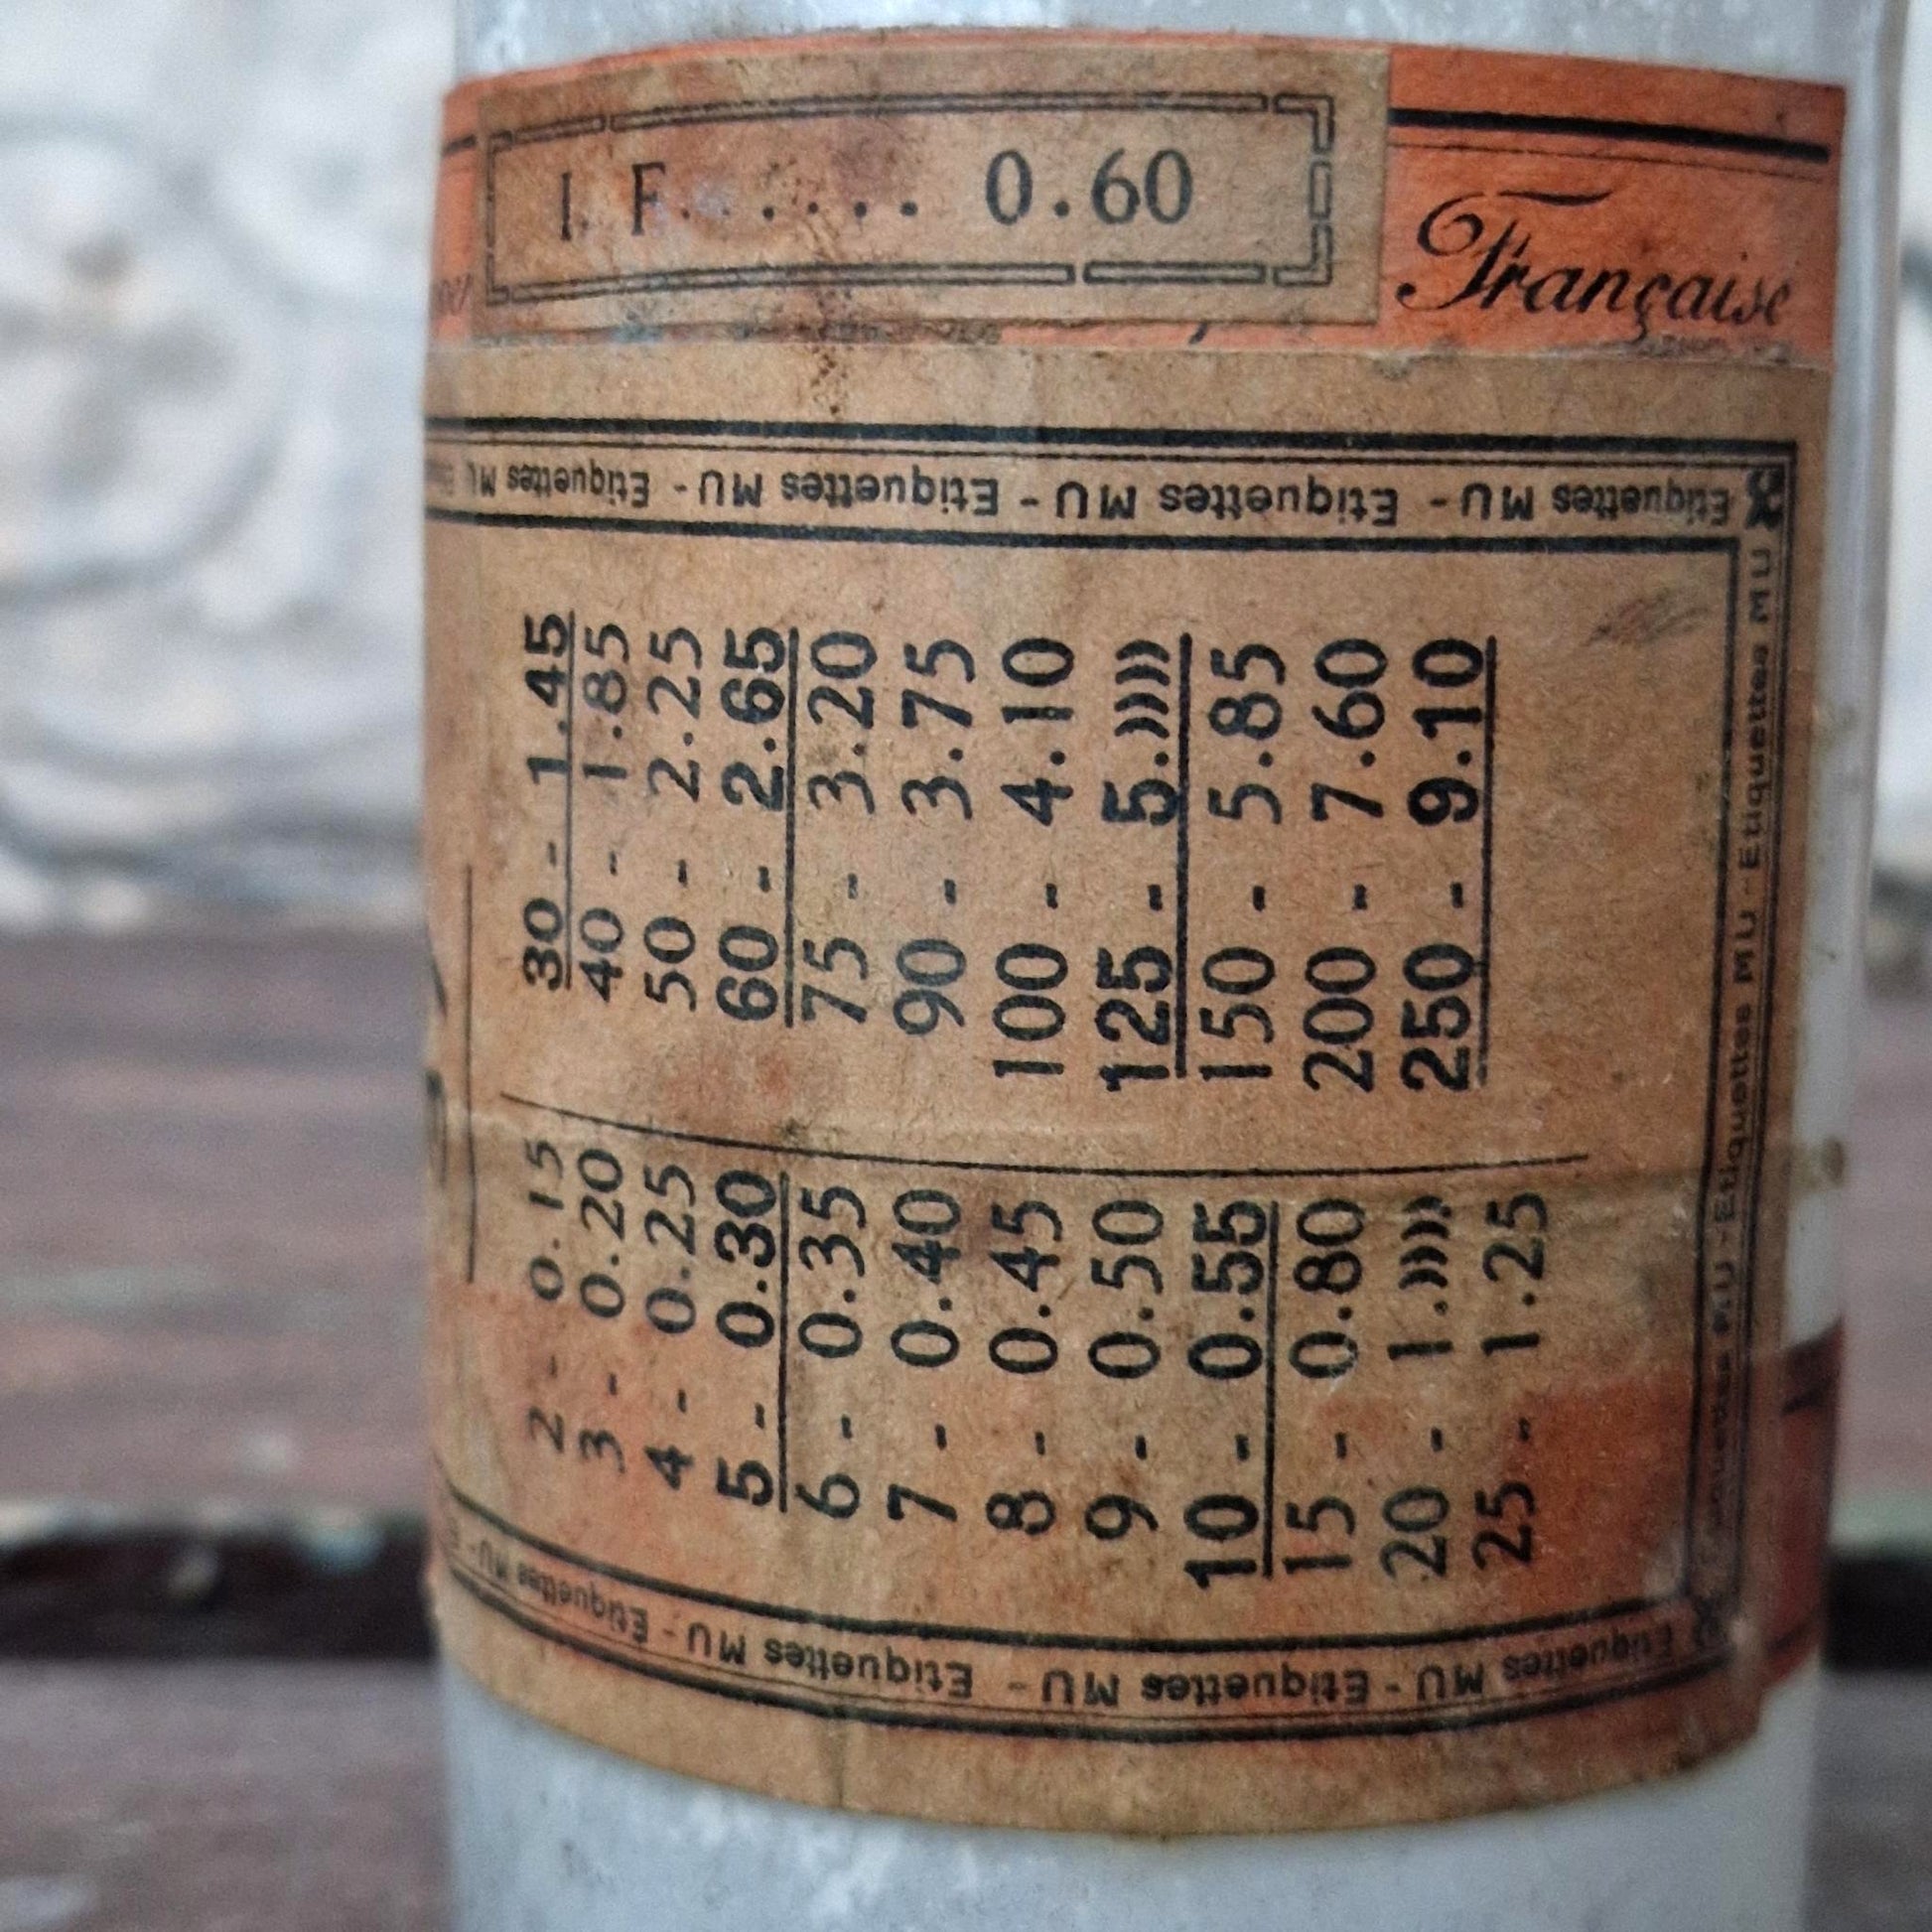 I. F. . . . . . 0.60
Française
Etiquettes MU - Etiquettes MU - Etiquettes MU - Etiquettes MU
2 - 0.15
3 - 0.20
4 - 0.25
5 - 0.30
6 - 0.35
7 - 0.40
8 - 0.45
9 - 0.50
10 - 0.55
15 - 0.80
20 - 1.»»
25 - 1.25
30 - 1.45
40 - 1.85
50 - 2.25
60 - 2.65
75 - 3.20
90 - 3.75
100 - 4.10
125 - 5.»»
150 - 5.85
200 - 7.60
250 - 9.10
Etiquettes MU - Etiquettes MU - Etiquettes MU
Etiquettes MU - Etiquettes MU - Etiquettes MU - Etiquettes MU